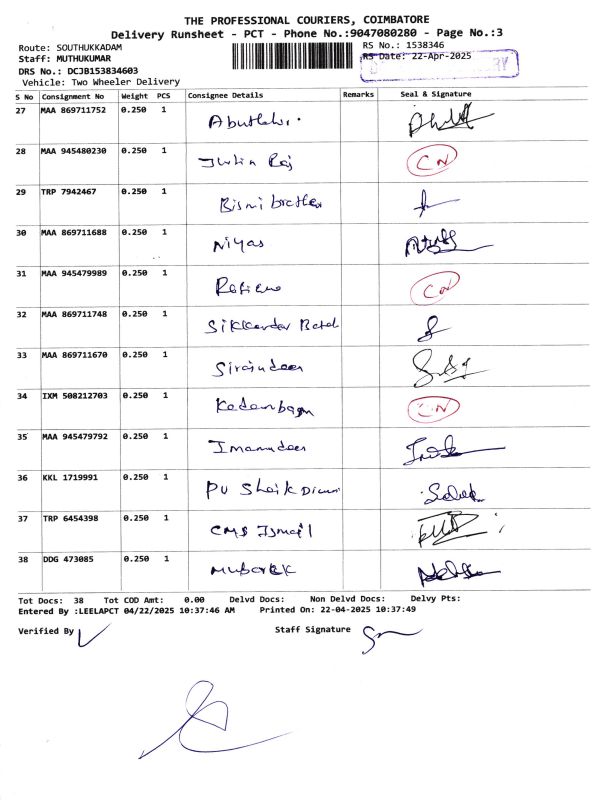 THE PROFESSIONAL COURIERS, COIMBATORE
Delivery Runsheet - PCT - Phone No.:9047080280 - Page No.:3
Route: SOUTHUKKADAM RS No.: 1538346
Staff: MUTHUKUMAR RS Date: 22-Apr-2025
DRS No.: DCJB153834603 RY
Vehicle: Two Wheeler Delivery
S No Consignment No Weight PCS Consignee Details Remarks Seal & Signature
27 MAA 869711752 0.250 1
28 MAA 945480230 0.250 1 Raj CN
29 TRP 7942467 0.250 1 Bismi brother
30 MAA 869711688 0.250 1 Niyas
31 MAA 945479989 0.250 1 CN
32 MAA 869711748 0.250 1 Sikkandar
33 MAA 869711670 0.250 1 Sirajudeen
34 IXM 508212703 0.250 1 CN
35 MAA 945479792 0.250 1 Imamudeen
36 KKL 1719991 0.250 1 PV Shaik
37 TRP 6454398 0.250 1 CMS Ismail
38 DDG 473085 0.250 1 Mubarak
Tot Docs: 38 Tot COD Amt: 0.00 Delvd Docs: Non Delvd Docs: Delvy Pts:
Entered By :LEELAPCT 04/22/2025 10:37:46 AM Printed On: 22-04-2025 10:37:49
Verified By Staff Signature